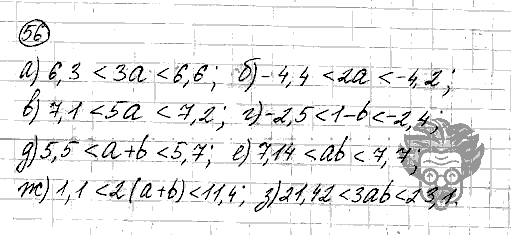 56
а) 6,3 < 3a < 6,6; б) -4,4 < 2a < -4,2;
в) 7,1 < 5a < 7,2; г) -2,5 < 1-b < -2,4;
д) 5,5 < a+b < 5,7; е) 7,14 < ab < 7,7;
ж) 1,1 < 2(a+b) < 11,4; з) 21,42 < 3ab < 23,1.